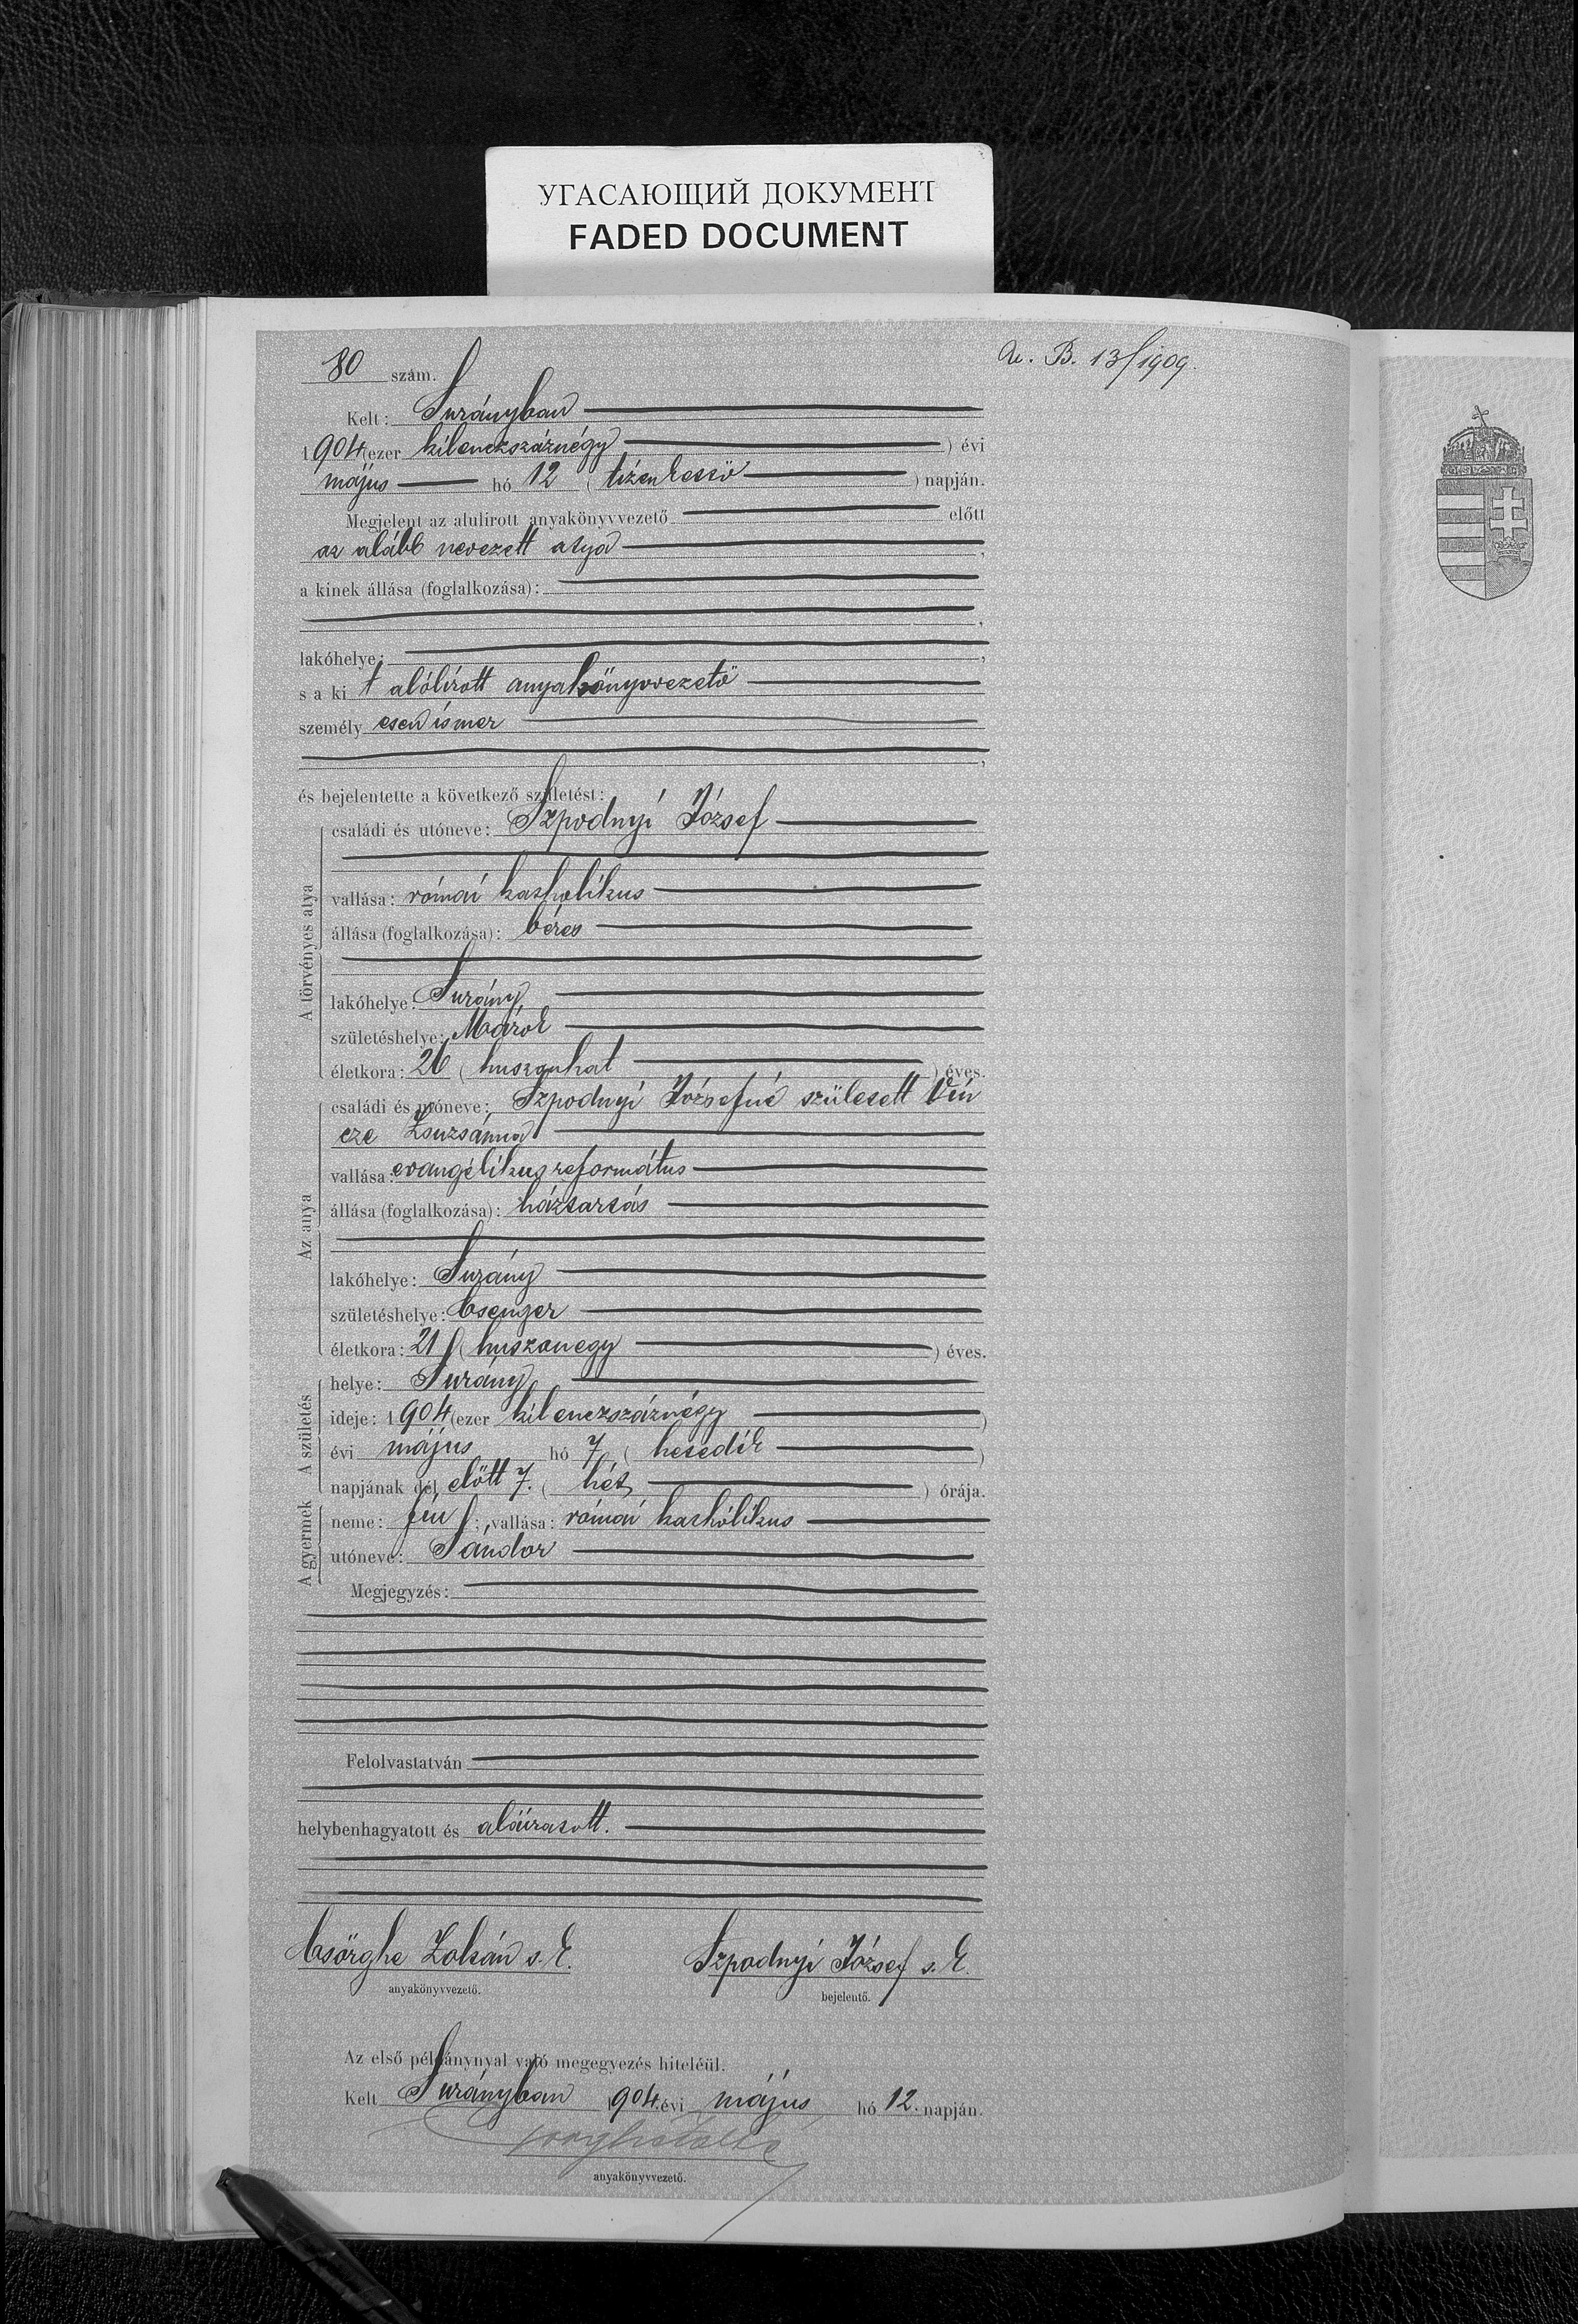 УГАСАЮЩИЙ ДОКУМЕНТ
FADED DOCUMENT
80 szám.
Ac. B. 13/1909.
Kelt: Surányban
1904 (ezer kilenczszáznégy) évi
május hó 12 (tizenkettö) napján.
Megjelent az alulirott anyakönyvvezető előtt
az alább nevezett atya,
a kinek állása (foglalkozása):
,
lakóhelye: ,
s a ki t alólirott anyakönyvvezetö
személy esen ismer
,
és bejelentette a következő születést:
A törvényes atya
családi és utóneve: Szpodnyi József
vallása: római katholikus
állása (foglalkozása): béres
lakóhelye: Surány
születéshelye: Márok
életkora: 26 (huszonhat) éves.
Az anya
családi és utóneve: Szpodnyi Józsefné született Vin
cze Zsuzsánna
vallása: evangélikus református
állása (foglalkozása): háztartás
lakóhelye: Surány
születéshelye: Csenger
életkora: 21 (huszonegy) éves.
A születés
helye: Surány
ideje: 1904 (ezer kilenczszáznégy)
évi május hó 7 (hetedik)
napjának dél elött 7. (hét) órája.
A gyermek
neme: fiu; vallása: római kathólikus
utóneve: Sándor
Megjegyzés:
Felolvastatván
helybenhagyatott és aláiratott.
Csörghe Zoltán s. k.
anyakönyvvezető.
Szpodnyi József s. k.
bejelentő.
Az első példánynyal való megegyezés hiteléül.
Kelt Surányban 1904. évi május hó 12. napján.
anyakönyvvezető.